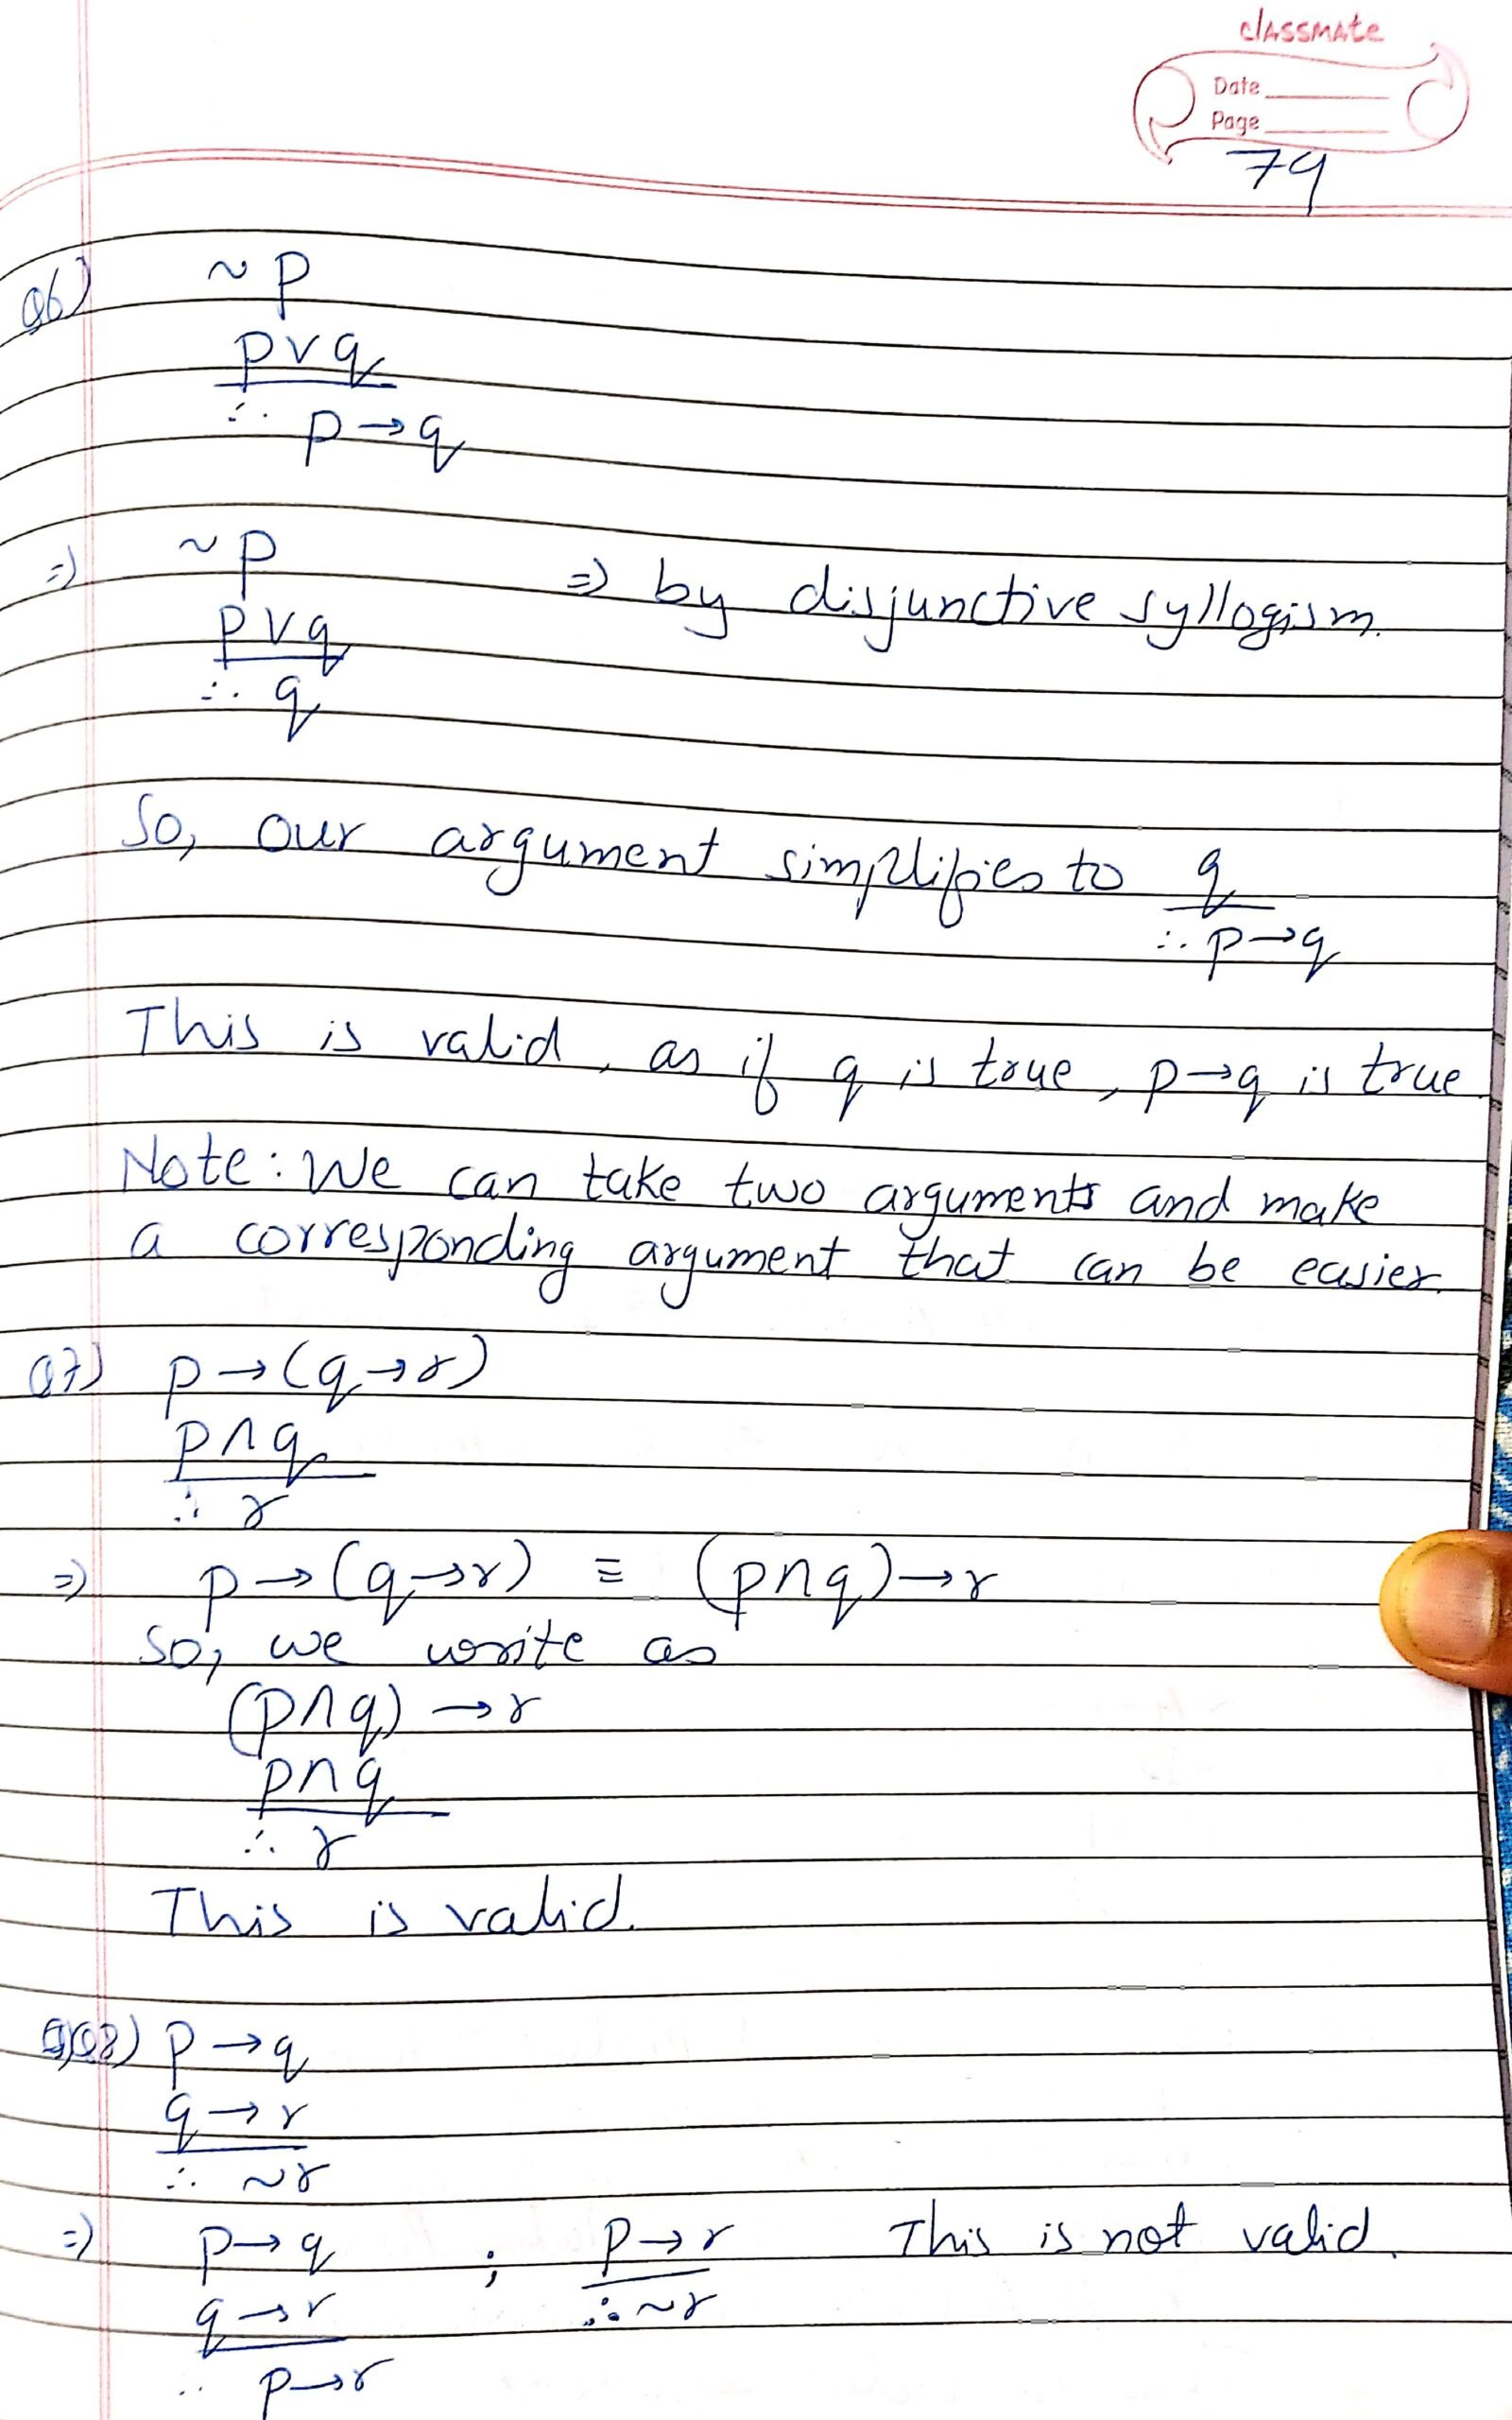 classmate
Date
Page
79
Q6) ~p
p∨q
∴ p→q
=) ~p =) by disjunctive syllogism.
p∨q
∴ q
So, our argument simplifies to q
∴ p→q
This is valid, as if q is true, p→q is true.
Note: We can take two arguments and make
a corresponding argument that can be easier.
Q7) p→(q→r)
p∧q
∴ r
=) p→(q→r) ≡ (p∧q)→r
So, we write as
(p∧q)→r
p∧q
∴ r
This is valid.
Q8) p→q
q→r
∴ ~r
=) p→q ; p→r This is not valid.
q→r ∴ ~r
∴ p→r